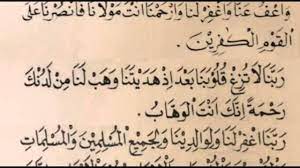 وَاعْفُ عَنَّا وَاغْفِرْ لَنَا وَارْحَمْنَا أَنْتَ مَوْلَانَا فَانْصُرْنَا عَلَى
الْقَوْمِ الْكٰفِرِيْنَ.
رَبَّنَا لَا تُزِغْ قُلُوْبَنَا بَعْدَ اِذْ هَدَيْتَنَا وَهَبْ لَنَا مِنْ لَدُنْكَ
رَحْمَةً اِنَّكَ اَنْتَ الْوَهَّابُ
رَبَّنَا اغْفِرْ لَنَا وَلِوَالِدِيْنَا وَلِجَمِيْعِ الْمُسْلِمِيْنَ وَالْمُسْلِمَاتِ